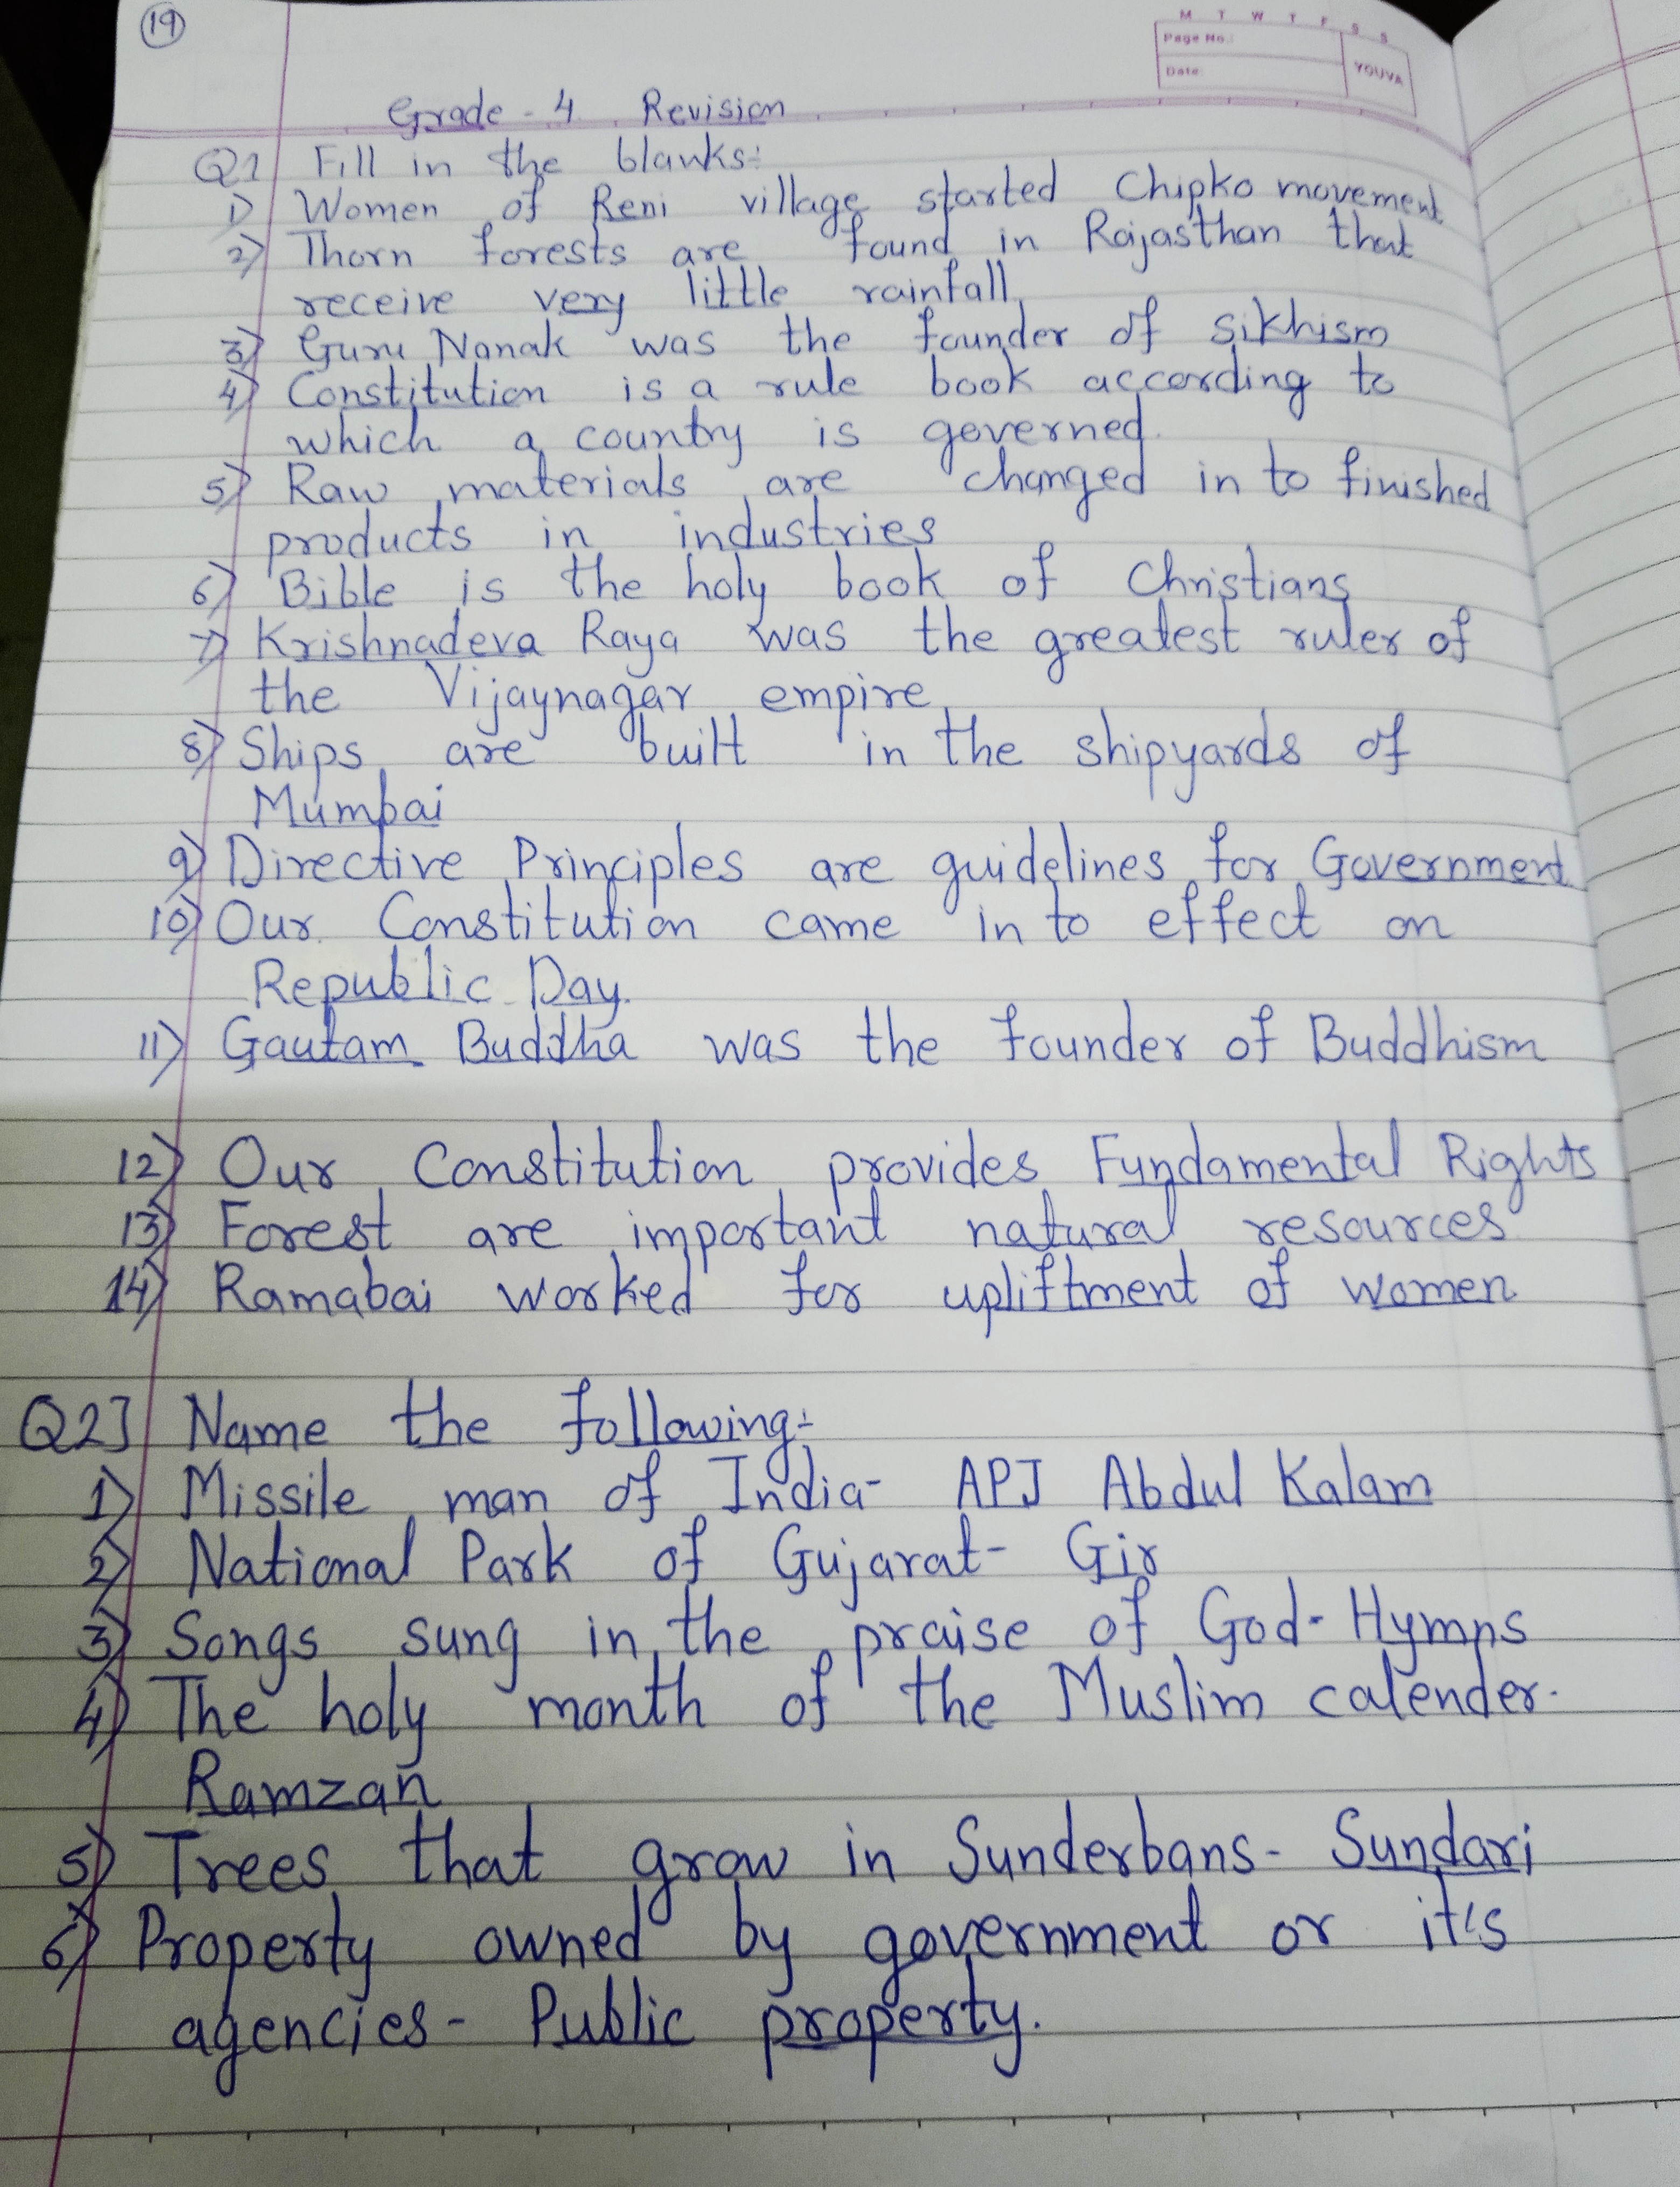 19
M T W T F S S
Page No.:
Date:
YOUVA
Grade - 4 Revision
Q1 Fill in the blanks:-
1) Women of Reni village started Chipko movement
2) Thorn forests are found in Rajasthan that
receive very little rainfall.
3) Guru Nanak was the founder of sikhism
4) Constitution is a rule book according to
which a country is governed.
5) Raw materials are changed in to finished
products in industries
6) Bible is the holy book of Christians
7) Krishnadeva Raya was the greatest ruler of
the Vijaynagar empire
8) Ships are built in the shipyards of
Mumbai
9) Directive Principles are guidelines for Government
10) Our Constitution came in to effect on
Republic Day.
11) Gautam Buddha was the founder of Buddhism
12) Our Constitution provides Fundamental Rights
13) Forest are important natural resources
14) Ramabai worked for upliftment of women
Q2] Name the following:-
1) Missile man of India- APJ Abdul Kalam
2) National Park of Gujarat- Gir
3) Songs sung in the praise of God- Hymns
4) The holy month of the Muslim calender-
Ramzan
5) Trees that grow in Sunderbans- Sundari
6) Property owned by government or it's
agencies- Public property.